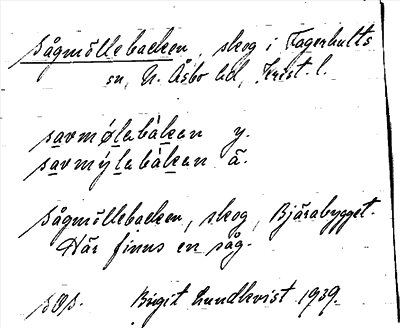 Sågmöllebacken, skog i Fagerhults
sn, N. Åsbo hd, Krist. l.
savmølebàken y.
savmýlebàken ä.
Sågmöllebacken, skog, Bjärabygget.
Här finns en såg.
Birgit Lundkvist 1939.